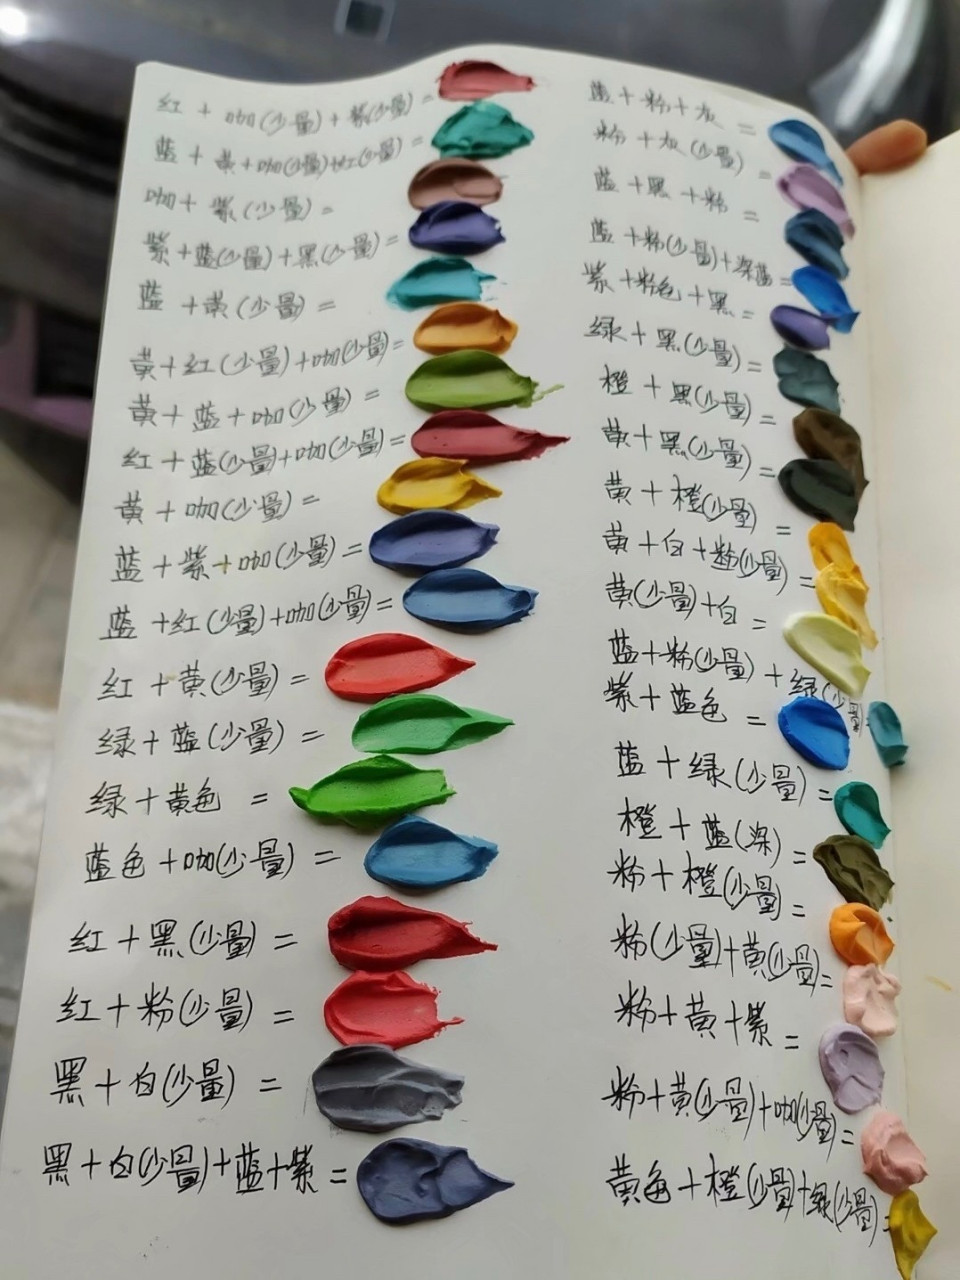 红+咖(少量)+紫(少量)=
蓝+黄+咖(少量)+红(少量)=
咖+紫(少量)=
紫+蓝(少量)+黑(少量)=
蓝+黄(少量)=
黄+红(少量)+咖(少量)=
黄+蓝+咖(少量)=
红+蓝(少量)+咖(少量)=
黄+咖(少量)=
蓝+紫+咖(少量)=
蓝+红(少量)+咖(少量)=
红+黄(少量)=
绿+蓝(少量)=
绿+黄色=
蓝色+咖(少量)=
红+黑(少量)=
红+粉(少量)=
黑+白(少量)=
黑+白(少量)+蓝+紫=
蓝+粉+灰=
粉+灰(少量)=
蓝+黑+粉=
蓝+粉(少量)+深蓝=
紫+粉色+黑=
绿+黑(少量)=
橙+黑(少量)=
黄+黑(少量)=
黄+橙(少量)=
黄+白+粉(少量)=
黄(少量)+白=
蓝+粉(少量)+绿(少量)
紫+蓝色=
蓝+绿(少量)=
橙+蓝(深)=
粉+橙(少量)=
粉(少量)+黄(少量)=
粉+黄+紫=
粉+黄(少量)+咖(少量)=
黄色+橙(少量)+绿(少量)=